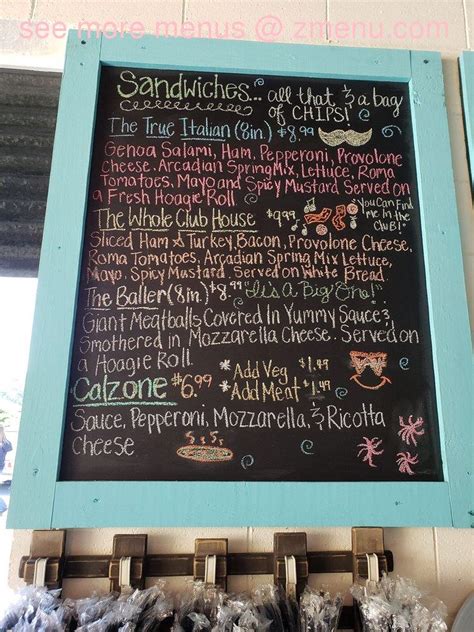 see more menus @ zmenu.com
Sandwiches... all that & a bag
of CHIPS!
The True Italian (8in.) $8.99
Genoa Salami, Ham, Pepperoni, Provolone
Cheese, Arcadian Spring Mix, Lettuce, Roma
Tomatoes, Mayo and Spicy Mustard Served on
a Fresh Hoagie Roll
The Whole Club House $9.99 "You Can Find
me In the
Club!"
Sliced Ham & Turkey, Bacon, Provolone Cheese,
Roma Tomatoes, Arcadian Spring Mix Lettuce,
Mayo, Spicy Mustard. Served on White Bread.
The Baller (8in.) $8.99 "It's a Big One!"
Giant Meatballs Covered In Yummy Sauce &
Smothered in Mozzarella Cheese. Served on
a Hoagie Roll.
Calzone $6.99 *Add Veg $1.99
*Add Meat $1.99
Sauce, Pepperoni, Mozzarella, & Ricotta
Cheese